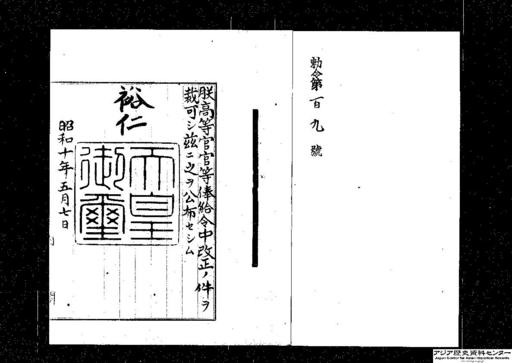 勅令第百九號
朕高等官官等俸給令中改正ノ件ヲ
裁可シ茲ニ之ヲ公布セシム
裕仁
天皇
御璽
昭和十年五月七日
アジア歴史資料センター
Japan Center for Asian Historical Records